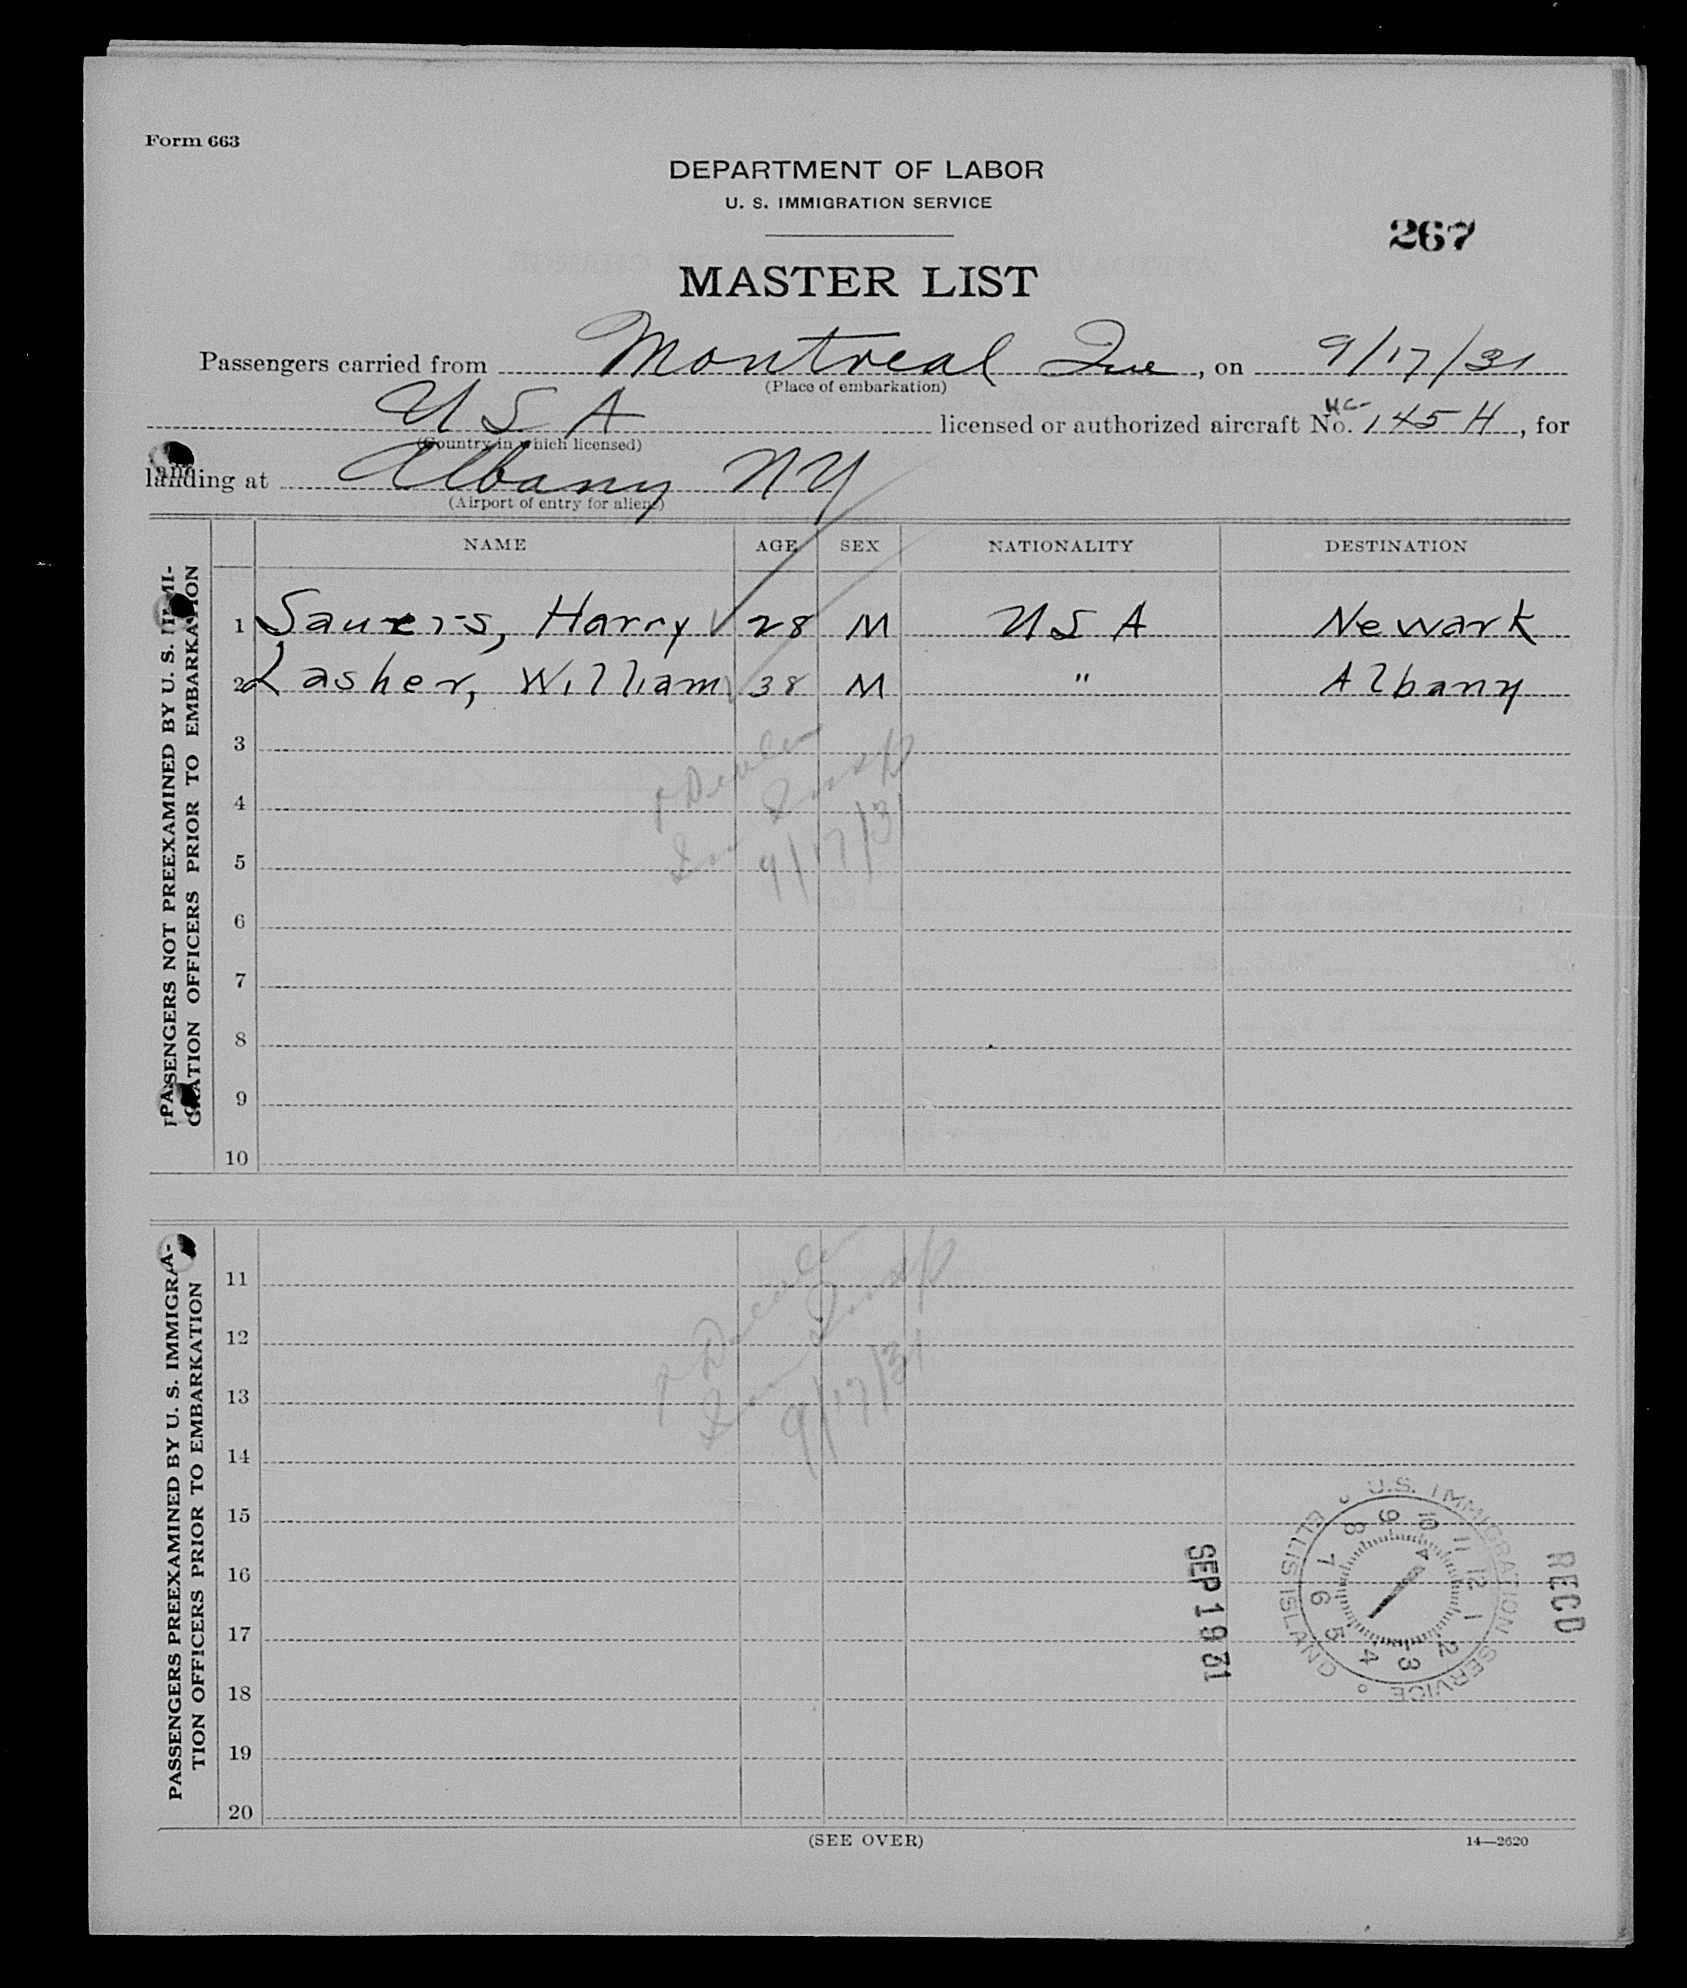 Form 663
DEPARTMENT OF LABOR
U. S. IMMIGRATION SERVICE
267
MASTER LIST
Passengers carried from Montreal Que, on 9/17/31
(Place of embarkation)
U S A licensed or authorized aircraft No. NC- 145 H, for
(Country in which licensed)
landing at Albany NY
(Airport of entry for aliens)
NAME AGE SEX NATIONALITY DESTINATION
PASSENGERS NOT PREEXAMINED BY U. S. IMMI-
GRATION OFFICERS PRIOR TO EMBARKATION
1 Sauers, Harry 28 M U S A Newark
2 Lasher, William 38 M " Albany
3
4
5
9/17/31
6
7
8
9
10
PASSENGERS PREEXAMINED BY U. S. IMMIGRA-
TION OFFICERS PRIOR TO EMBARKATION
11
12
13
9/17/31
14
15
16
17
18
19
20
U.S. IMMIGRATION SERVICE
ELLIS ISLAND
12 1 2 3 4 5 6 7 8 9 10 11
RECD
SEP 19 31
(SEE OVER)
14—2620